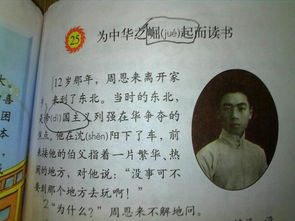 25 为中华之崛(jué)起而读书
12岁那年，周恩来离开家
乡，来到了东北。当时的东北，
是帝(dì)国主义列强在华争夺的
焦点。他在沈(shěn)阳下了车，前
来接他的伯父指着一片繁华、热
闹的地方，对他说：“没事可不
要到那个地方去玩啊！”
“为什么？”周恩来不解地问。